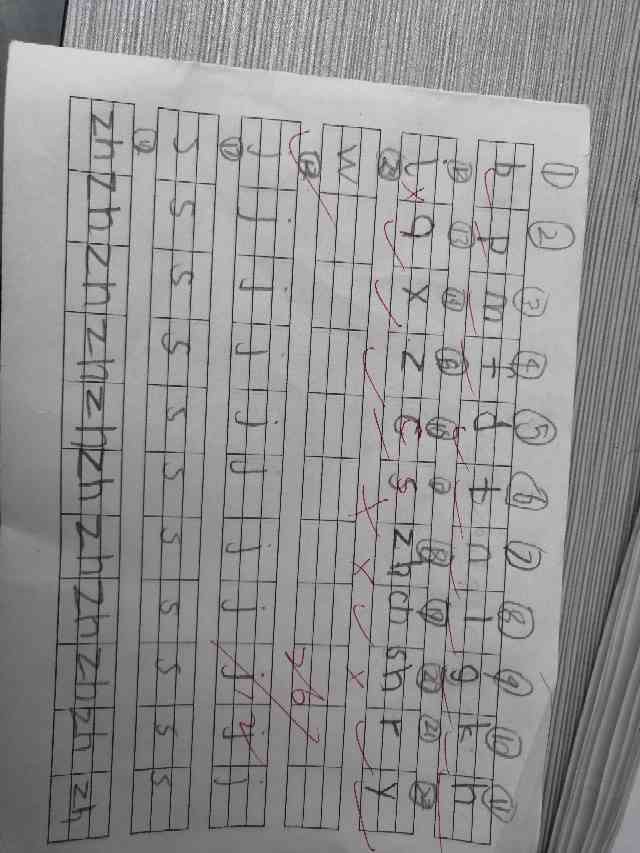 ① ② ③ ④ ⑤ ⑥ ⑦ ⑧ ⑨ ⑩ ⑪
b p m f d t n l g k h
⑫ ⑬ ⑭ ⑱ ⑲ ⑳
j q x z c s zh ch sh r y
w
j j j j j j j j j j j
s s s s s s s s s s s
zh zh zh zh zh zh zh zh zh zh zh